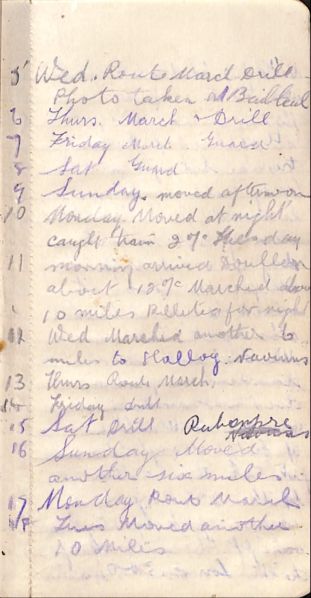 5 Wed. Route March Drill
Photo taken at Bailleul
6 Thurs. March & Drill
7 Friday March Guard
8 Sat Guard
9 Sunday. moved afternoon
10 Monday Moved at night
caught train 2 Tuesday
11 morning arrived Doullens
about 12 Marched
10 miles Billeted for night
12 Wed Marched another 10
miles to Halloy.
13 Thurs Route March,
14 Friday Drill
15 Sat Drill
16 Sunday Moved
another six miles
17 Monday Rout March
18 Tues Moved another
10 Miles